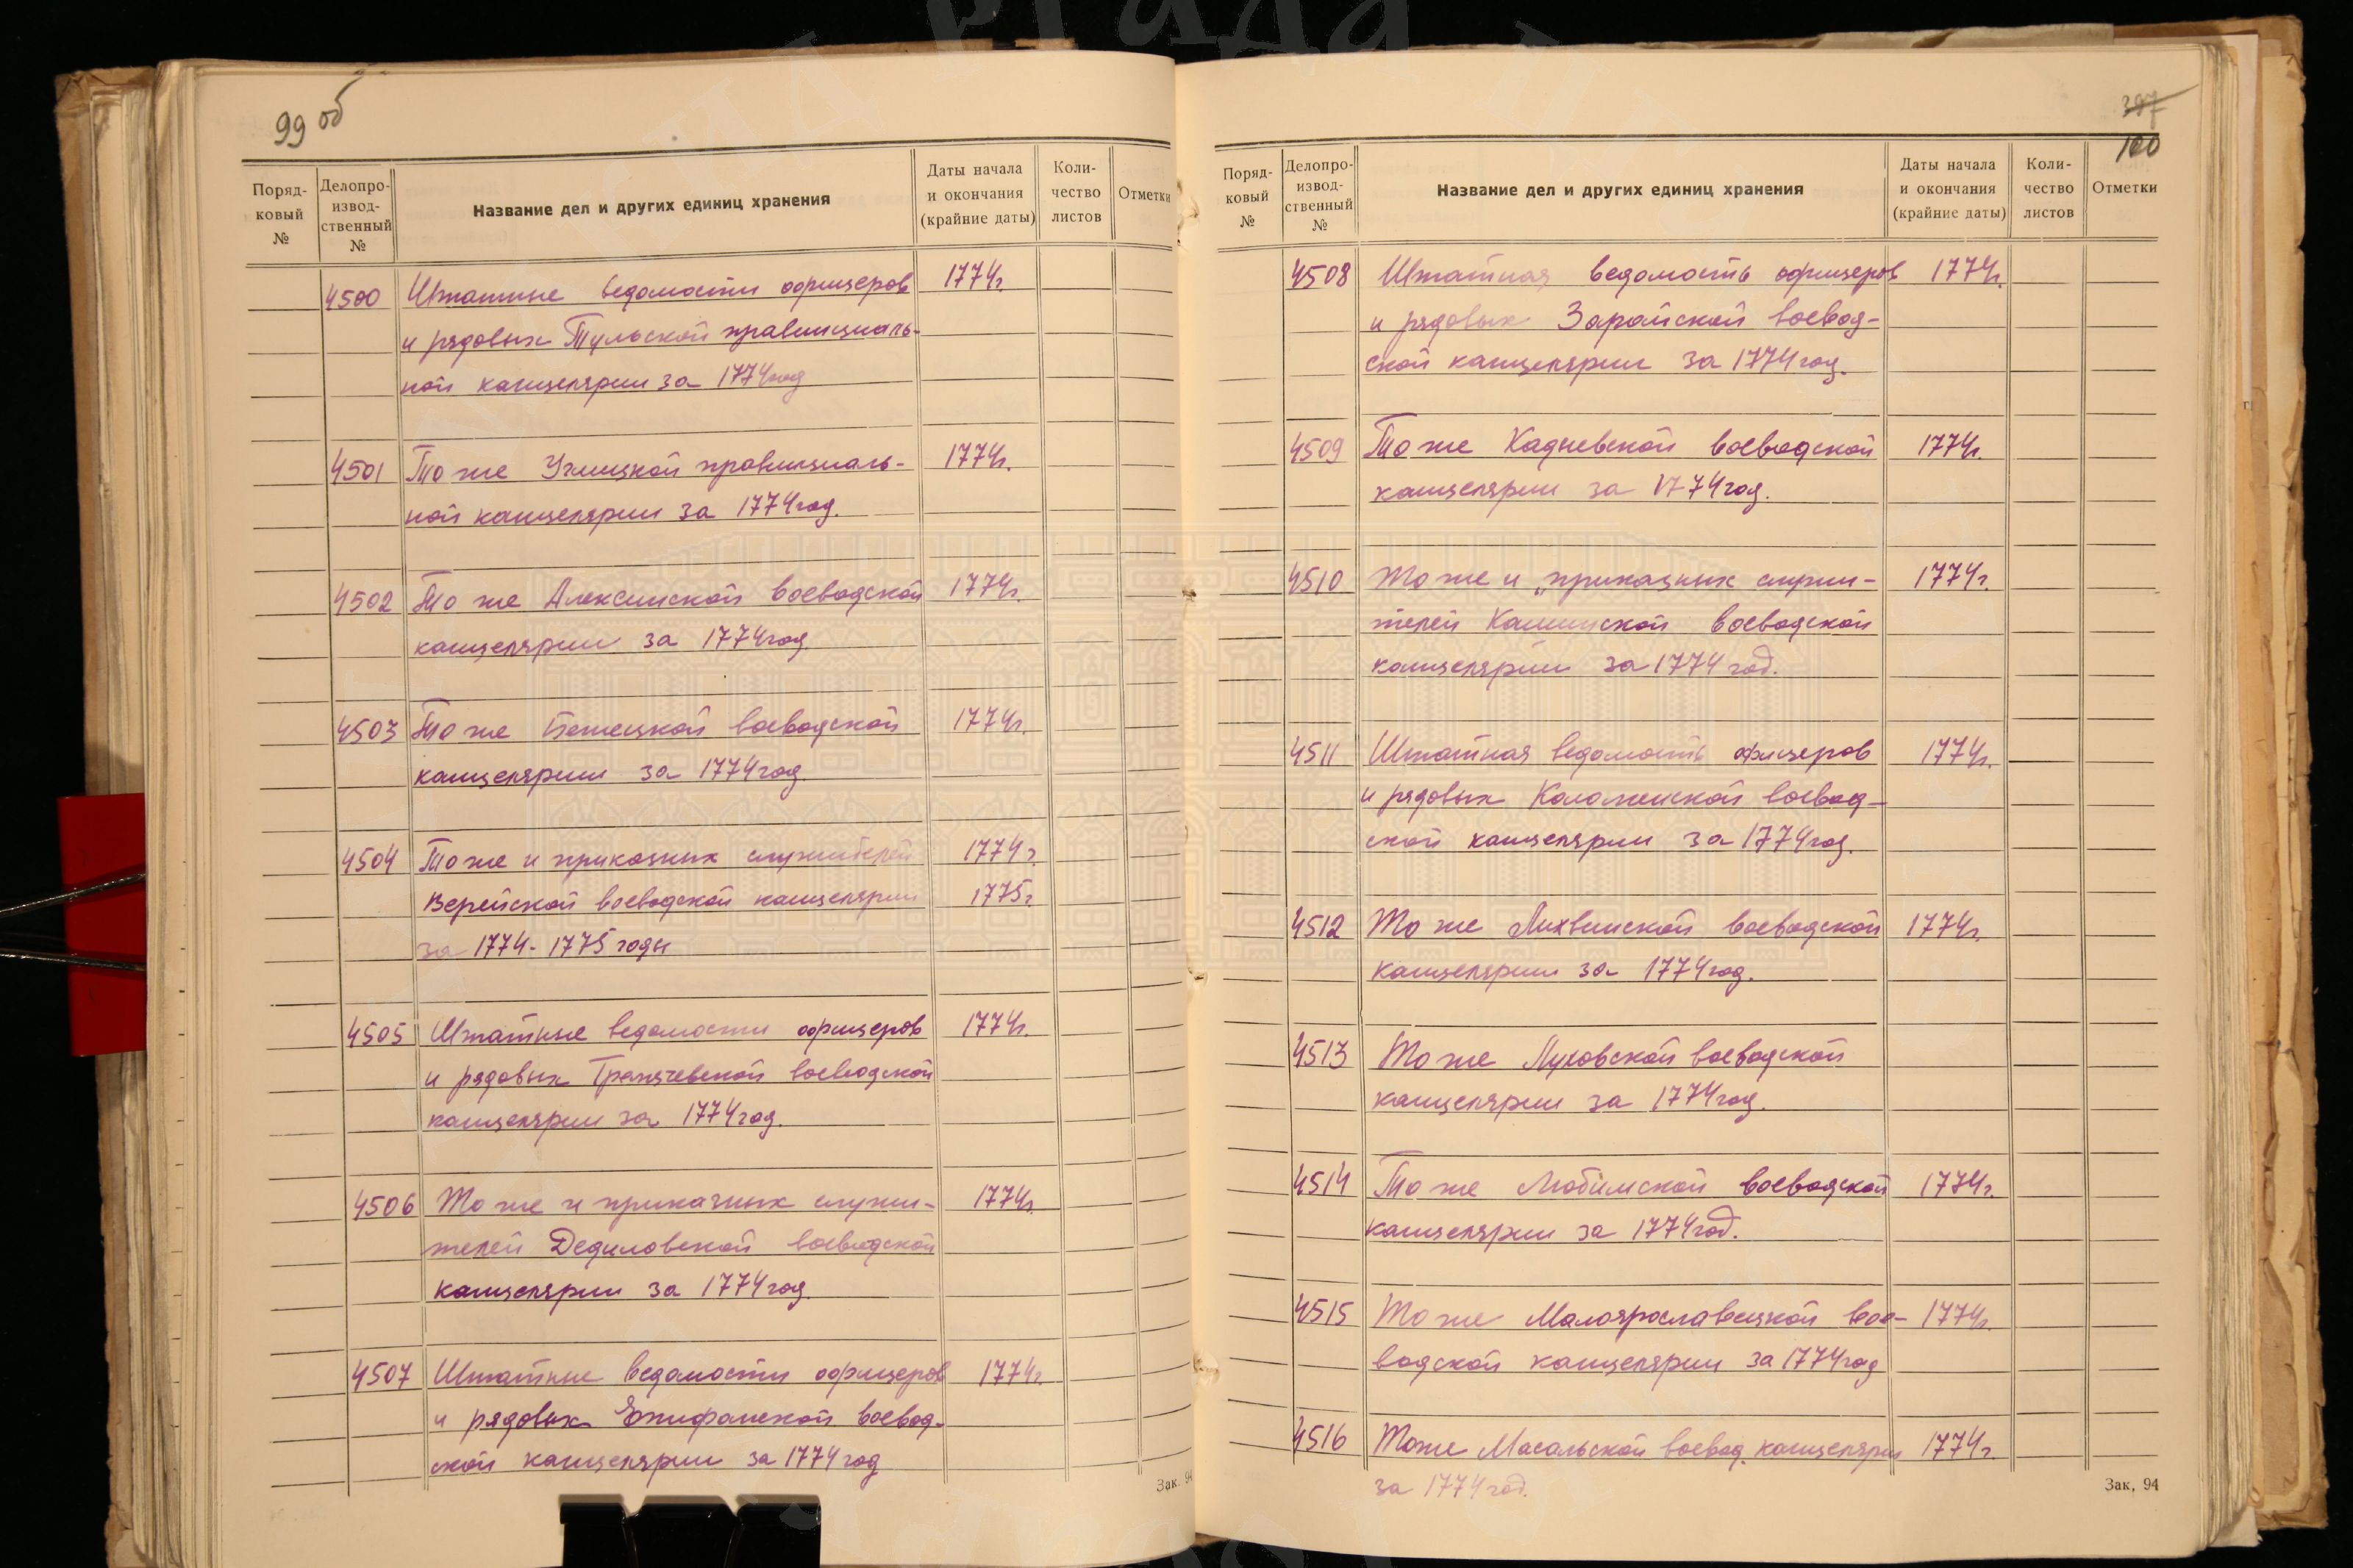 99 об
Поряд-
ковый
№
Делопро-
извод-
ственный
№
Название дел и других единиц хранения
Даты начала
и окончания
(крайние даты)
Коли-
чество
листов
Отметки
4500 Штатные ведомости офицеров 1774г.
и рядовых Тульской правинциаль-
ной канцелярии за 1774год
4501 То же Углицкой правинциаль- 1774г.
ной канцелярии за 1774год.
4502 То же Алексинской воеводской 1774г.
канцелярии за 1774год.
4503 То же Бежецкой воеводской 1774г.
канцелярии за 1774год.
4504 То же и приказных служителей 1774г.
Верейской воеводской канцелярии 1775г.
за 1774-1775 годы
4505 Штатные ведомости офицеров 1774г.
и рядовых воеводской
канцелярии за 1774год.
4506 То же и приказных служи- 1774г.
телей Дедиловской воеводской
канцелярии за 1774год.
4507 Штатные ведомости офицеров 1774г.
и рядовых Епифанской воевод-
ской канцелярии за 1774год
Зак. 94
397
100
Поряд-
ковый
№
Делопро-
извод-
ственный
№
Название дел и других единиц хранения
Даты начала
и окончания
(крайние даты)
Коли-
чество
листов
Отметки
4508 Штатная ведомость офицеров 1774г.
и рядовых Зарайской воевод-
ской канцелярии за 1774год.
4509 То же Кадуевской воеводской 1774г.
канцелярии за 1774год.
4510 То же и „приказных служи- 1774г.
телей Кашинской воеводской
канцелярии за 1774 год.
4511 Штатная ведомость офицеров 1774г.
и рядовых Коломенской воевод-
ской канцелярии за 1774год.
4512 То же Лихвинской воеводской 1774г.
канцелярии за 1774год.
4513 То же Луховской воеводской
канцелярии за 1774год.
4514 То же Любимской воеводской 1774г.
канцелярии за 1774год.
4515 То же Малоярославецкой вое- 1774г.
водской канцелярии за 1774год
4516 То же Масальской воевод. канцелярии 1774г.
за 1774год.
Зак. 94